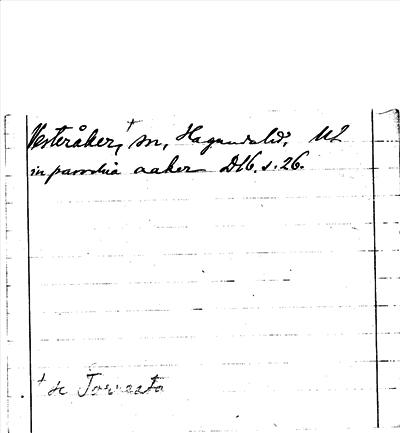 Vesteråker,⁺ sn, Hagunda hd, Ul
in parochia aaker D16. s. 26.
⁺ se Torresta